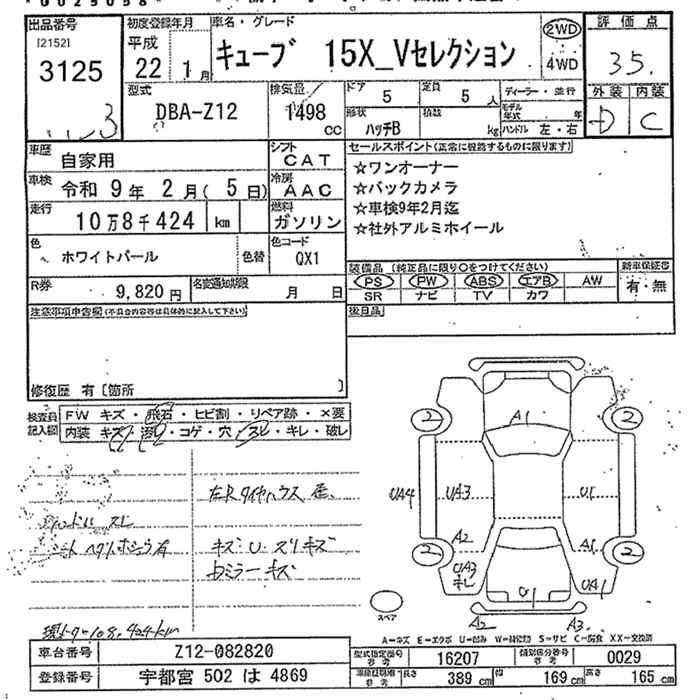 出品番号
[2152]
3125
3
初度登録年月
平成
22年 1月
車名・グレード
キューブ 15X_Vセレクション
2WD
4WD
評価点
3.5
外装 内装
D C
型式
DBA-Z12
排気量
1498
cc
ドア
5
定員
5人
形状
ハッチB
積数
kg
ディーラー・並行
モデル年式 年
ハンドル 左・右
車歴
自家用
シフト
CAT
車検
令和 9年 2月( 5日)
冷房
AAC
走行
10万8千424 km
燃料
ガソリン
色
ホワイトパール
色替
色コード
QX1
セールスポイント(正常に機能するものに限ります)
☆ワンオーナー
☆バックカメラ
☆車検9年2月迄
☆社外アルミホイール
R券
9,820円
名変通知期限
月 日
装備品 (純正品に限り○をつけてください)
PS PW ABS エアB AW
SR ナビ TV カワ
新車保証書
有・無
後日品
注意事項申告欄(不具合内容等は具体的に記入して下さい)
修復歴 有〔箇所 〕
検査員記入欄
FW キズ・飛石・ヒビ割・リペア跡・×要
内装 キズ・汚れ・コゲ・穴・スレ・キレ・破レ
ハンドル スレ
左Rタイヤハウス
キズ U スリキズ
ミラーキズ
2 2
A1
UA4 UA3 U1
A2 A1
2 2
UA3
キレ
U1 UA1
A2 A3
スペア
A=キズ E=エクボ U=凹み W=補修跡 S=サビ C=腐食 XX=交換済
車台番号
Z12-082820
登録番号
宇都宮 502 は 4869
型式指定番号
参考
16207
類別区分番号
参考
0029
車庫証明用
参考
長さ 389cm
幅 169cm
高さ 165cm